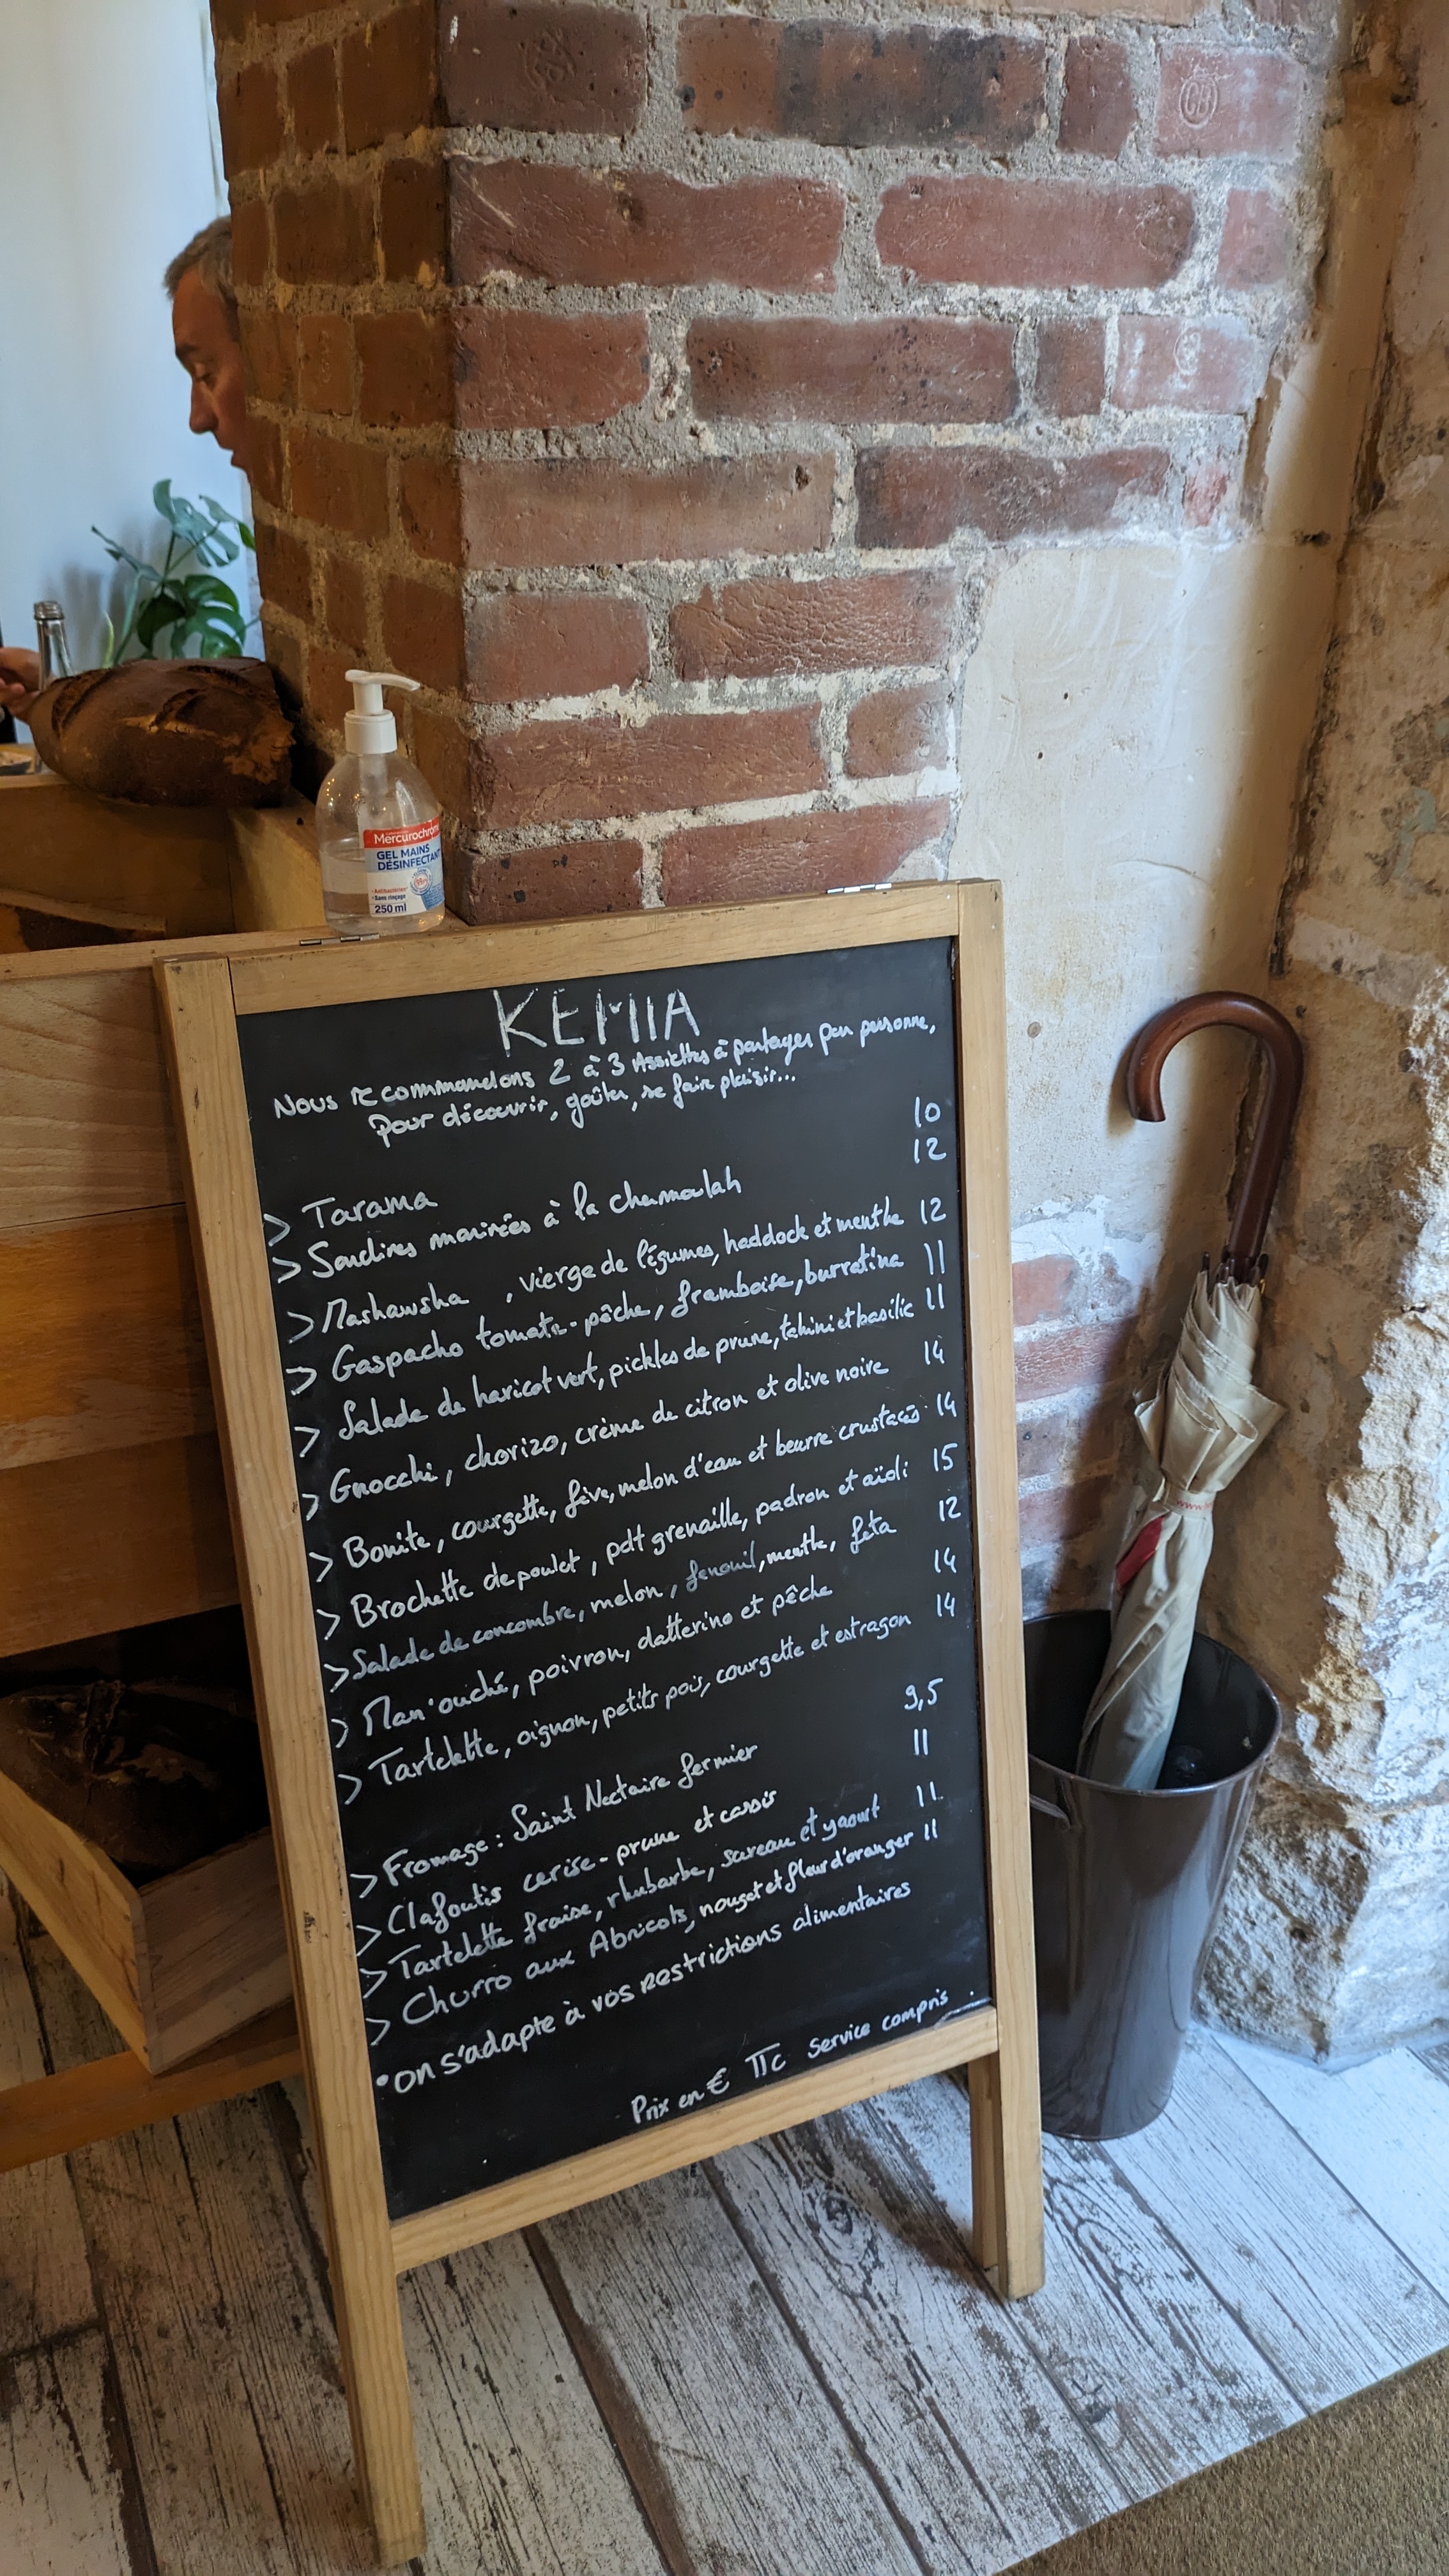 Mercurochrome
GEL MAINS
DÉSINFECTANT
Antibactérien
Sans rinçage
250 ml
KEMIA
Nous recommandons 2 à 3 Assiettes à partager par personne,
Pour découvrir, goûter, se faire plaisir...
> Tarama 10
> Sardines marinées à la chermoulah 12
> Mashawsha , vierge de légumes, haddock et menthe 12
> Gaspacho tomate-pêche, framboise, burratina 11
> Salade de haricot vert, pickles de prune, tahini et basilic 11
> Gnocchi, chorizo, crème de citron et olive noire 14
> Bonite, courgette, fève, melon d'eau et beurre crustacés 14
> Brochette de poulet, pdt grenaille, padron et aïoli 15
> Salade de concombre, melon, fenouil, menthe, feta 12
> Man'ouché, poivron, datterino et pêche 14
> Tartelette, oignon, petits pois, courgette et estragon 14
> Fromage : Saint Nectaire fermier 9,5
> Clafoutis cerise-prune et cassis 11
> Tartelette fraise, rhubarbe, sureau et yaourt 11
> Churro aux Abricots, nouget et fleur d'oranger 11
• on s'adapte à vos restrictions alimentaires
Prix en € TTC Service compris.